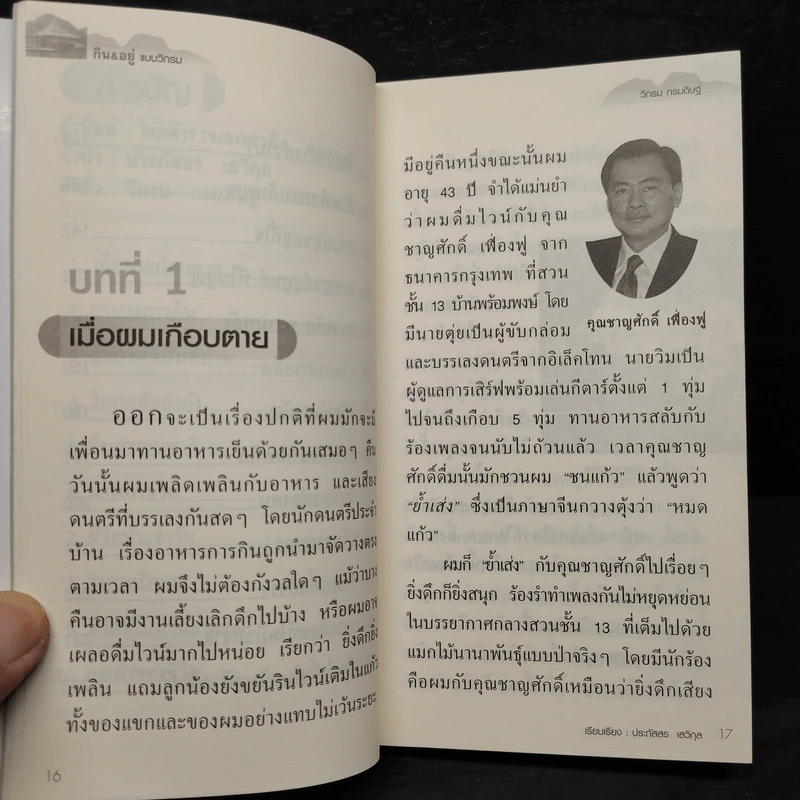 กิน&อยู่ แบบวิกรม
บทที่ 1
เมื่อผมเกือบตาย
ออกจะเป็นเรื่องปกติที่ผมมักจะมี
เพื่อนมาทานอาหารเย็นด้วยกันเสมอๆ คืน
วันนั้นผมเพลิดเพลินกับอาหาร และเสียง
ดนตรีที่บรรเลงกันสดๆ โดยนักดนตรีประจำ
บ้าน เรื่องอาหารการกินถูกนำมาจัดวางตรง
ตามเวลา ผมจึงไม่ต้องกังวลใดๆ แม้ว่าบาง
คืนอาจมีงานเลี้ยงเลิกดึกไปบ้าง หรือผมอาจ
เผลอดื่มไวน์มากไปหน่อย เรียกว่า ยิ่งดึกยิ่ง
เพลิน แถมลูกน้องยังขยันรินไวน์เติมในแก้ว
ทั้งของแขกและของผมอย่างแทบไม่เว้นระยะ
16
วิกรม กรมดิษฐ์
มีอยู่คืนหนึ่งขณะนั้นผม
อายุ 43 ปี จำได้แม่นยำ
ว่าผมดื่มไวน์กับคุณ
ชาญศักดิ์ เฟื่องฟู จาก
ธนาคารกรุงเทพ ที่สวน
ชั้น 13 บ้านพร้อมพงษ์ โดย
มีนายตุ่ยเป็นผู้ขับกล่อม
คุณชาญศักดิ์ เฟื่องฟู
และบรรเลงดนตรีจากอิเล็คโทน นายวิมเป็น
ผู้ดูแลการเสิร์ฟพร้อมเล่นกีตาร์ตั้งแต่ 1 ทุ่ม
ไปจนถึงเกือบ 5 ทุ่ม ทานอาหารสลับกับ
ร้องเพลงจนนับไม่ถ้วนแล้ว เวลาคุณชาญ
ศักดิ์ดื่มนั้นมักชวนผม “ชนแก้ว” แล้วพูดว่า
“ย้ำเส่ง” ซึ่งเป็นภาษาจีนกวางตุ้งว่า “หมด
แก้ว”
ผมก็ “ย้ำเส่ง” กับคุณชาญศักดิ์ไปเรื่อยๆ
ยิ่งดึกก็ยิ่งสนุก ร้องรำทำเพลงกันไม่หยุดหย่อน
ในบรรยากาศกลางสวนชั้น 13 ที่เต็มไปด้วย
แมกไม้นานาพันธุ์แบบป่าจริงๆ โดยมีนักร้อง
คือผมกับคุณชาญศักดิ์เหมือนว่ายิ่งดึกเสียง
เรียบเรียง : ประภัสสร เสวิกุล 17